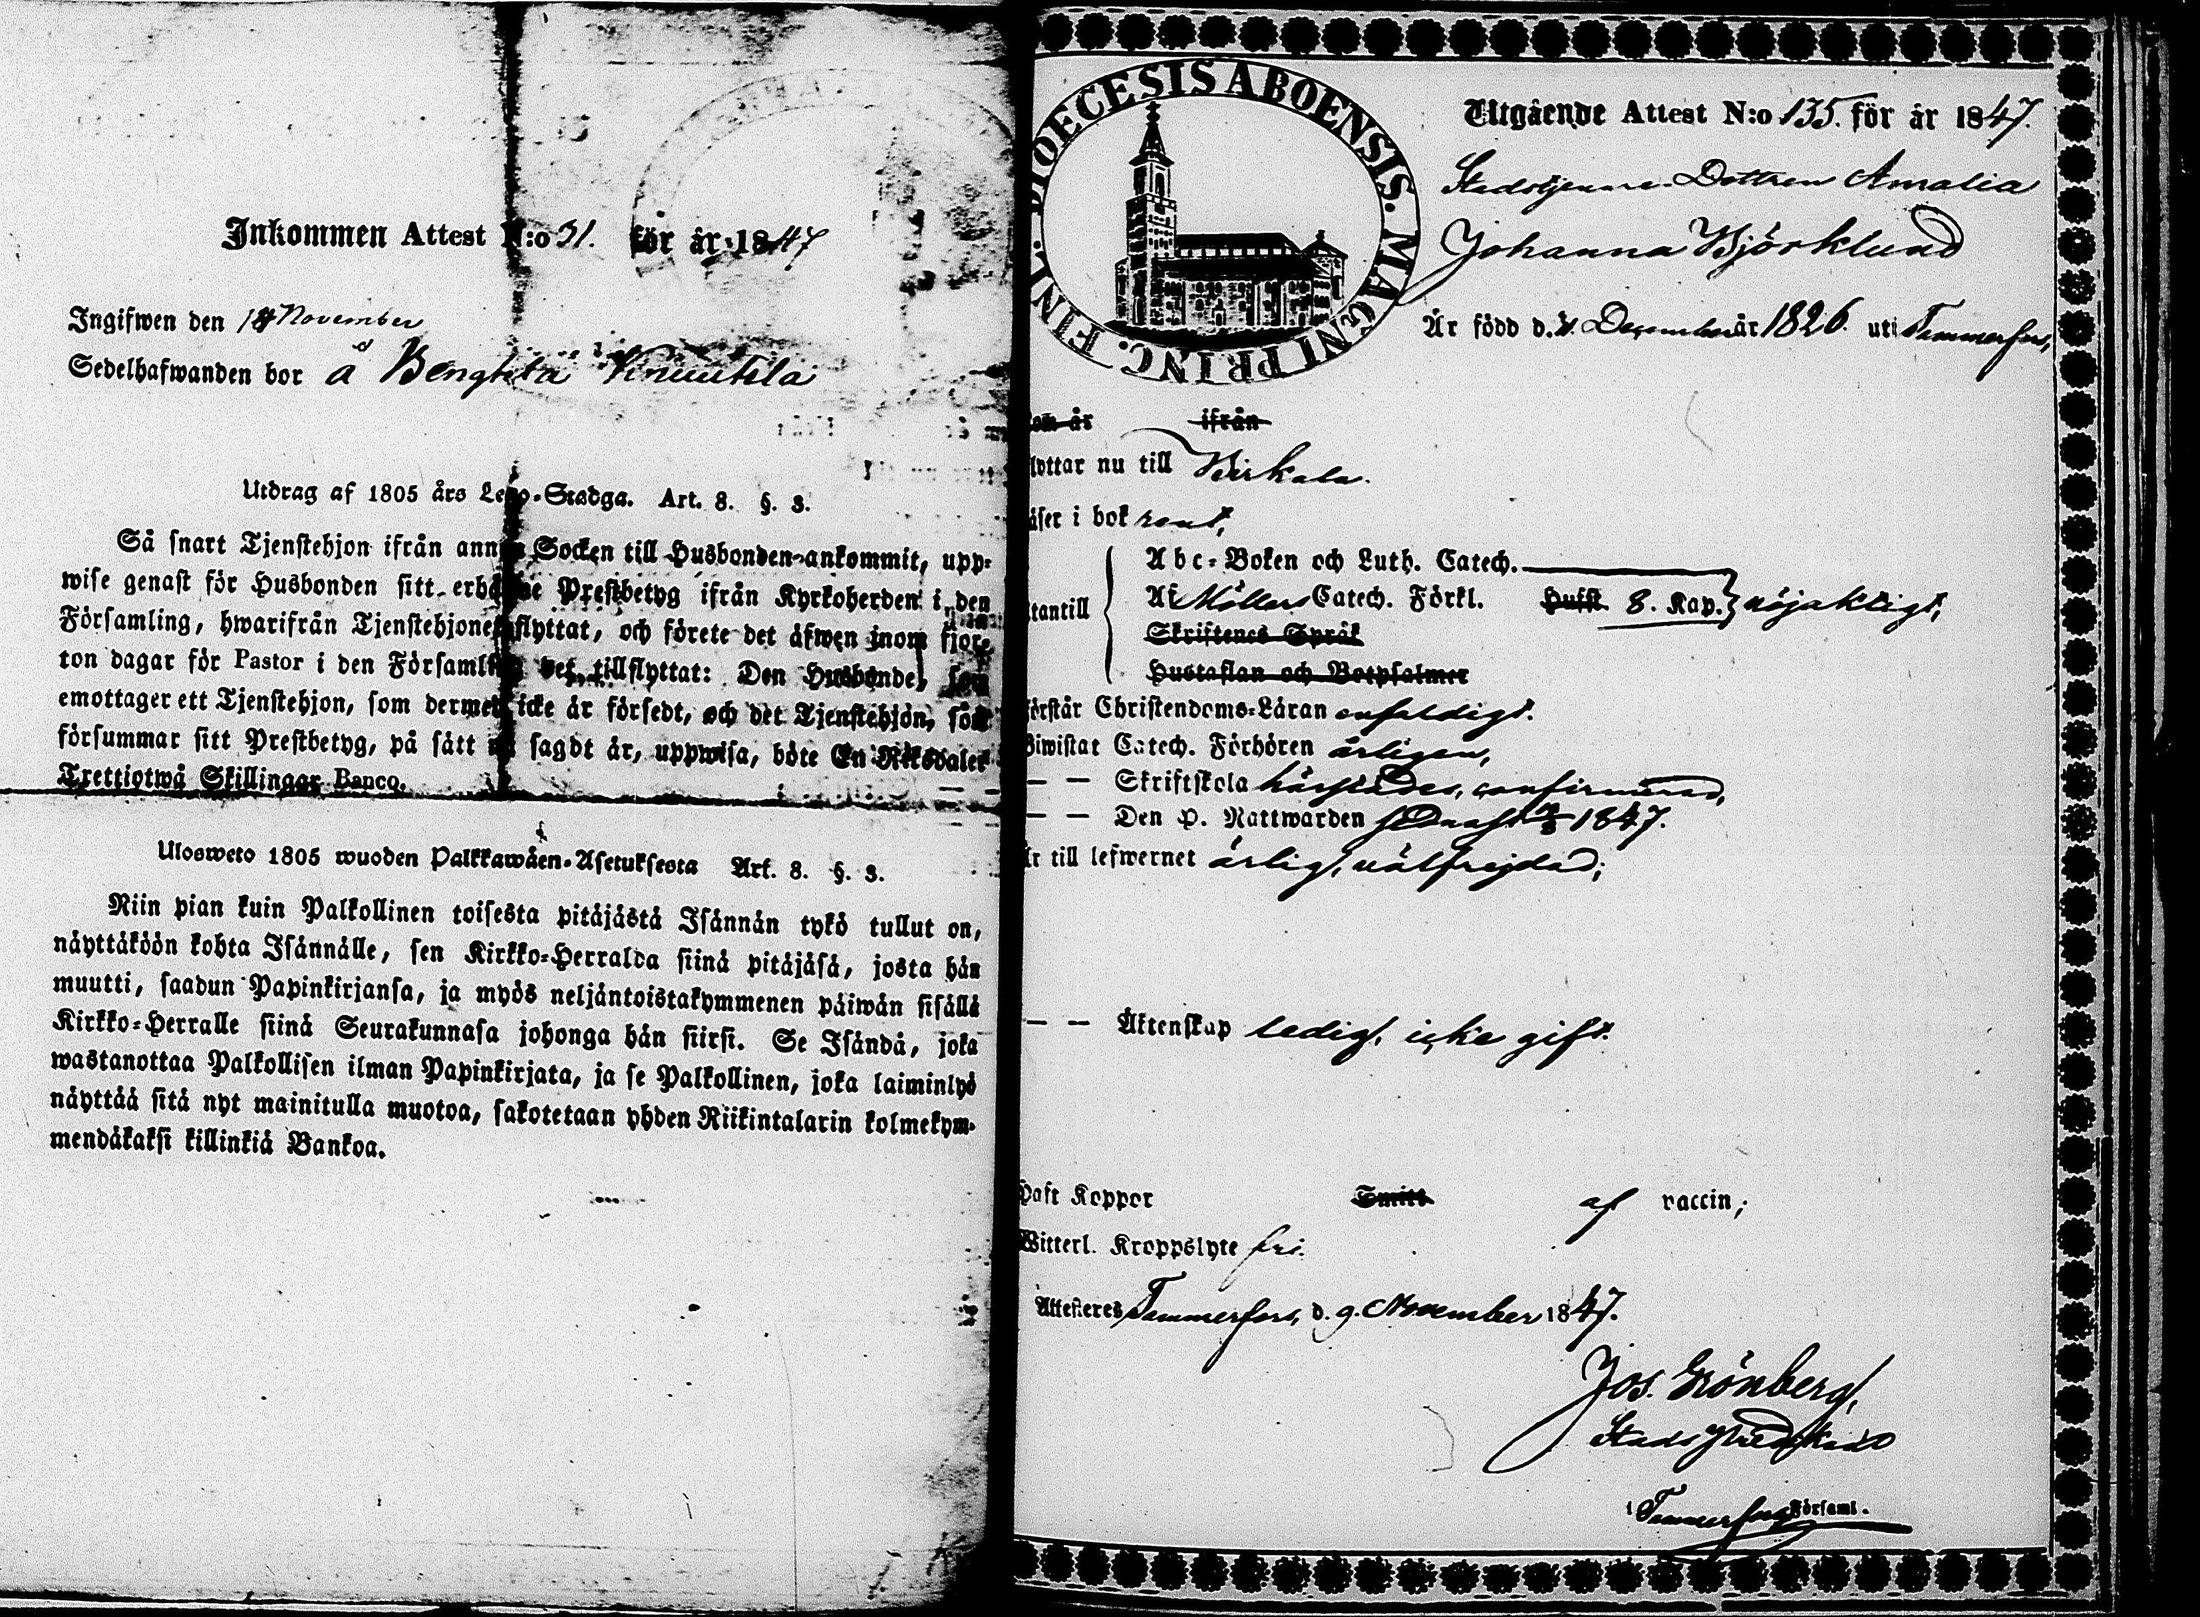 Inkommen Attest N:o 31. för år 1847
Ingifwen den 14 November
Sedelhafwanden bor å Benghtilä Knuutila
Utdrag af 1805 års Lego-Stadga. Art. 8. §. 3.
Så snart Tjenstehjon ifrån annan Socken till Husbonden ankommit, upp-
wise genast för Husbonden sitt erhållne Prestbetyg ifrån Kyrkoherden i den
Församling, hwarifrån Tjenstehjonet flyttat, och förete det äfwen inom fjor-
ton dagar för Pastor i den Församling det tillflyttat: Den Husbonde, som
emottager ett Tjenstehjon, som dermed icke är försedt, och det Tjenstehjon, som
försummar sitt Prestbetyg, på sätt nu sagdt är, uppwisa, böte En Riksdaler
Trettiotwå Skillingar Banco.
Ulosweto 1805 wuoden Palkkawäen-Asetuksesta Art. 8. §. 3.
Niin pian kuin Palkollinen toisesta pitäjästä Isännän tykö tullut on,
näyttäköön kohta Isännälle, sen Kirkko-Herralda siinä pitäjäsä, josta hän
muutti, saadun Papinkirjansa, ja myös neljäntoistakymmenen päiwän sisällä
Kirkko-Herralle siinä Seurakunnasa johonga hän siirsi. Se Isändä, joka
wastanottaa Palkollisen ilman Papinkirjata, ja se Palkollinen, joka laiminlyö
näyttää sitä nyt mainitulla muotoa, sakotetaan yhden Riikintalarin kolmekym-
mendäkaksi killinkiä Bankoa.
DIOECESIS ABOENSIS. MAGNI PRINC. FINL.
Utgående Attest N:o 135. för år 1847.
Stadstjenare-Dottren Amalia
Johanna Björklund
Är född d. December år 1826. uti Tammerfors,
om år ifrån
lyttar nu till Birkala.
äser i bok rent,
tantill
Abc-Boken och Luth. Catech.
Af Möllers Catech. Förkl. Hufst. 8. Kap. nöjaktigt,
Skriftenes Språk
Hustaflan och Botpsalmer
örstår Christendoms-Läran enfaldigt.
iwistat Catech. Förhören årligen,
— — Skriftskola härstädes, confirmerad,
— — Den H. Nattwarden sednast 1847.
r till lefwernet ärlig, välfrejdad;
— — Äktenskap ledig, icke gift.
Haft Koppor Smitt af vaccin;
Witterl. Kroppslyte fri.
Attesteres Tammerfors, d. 9. November 1847.
Jos. Grönberg,
i Tammerfors Församl.